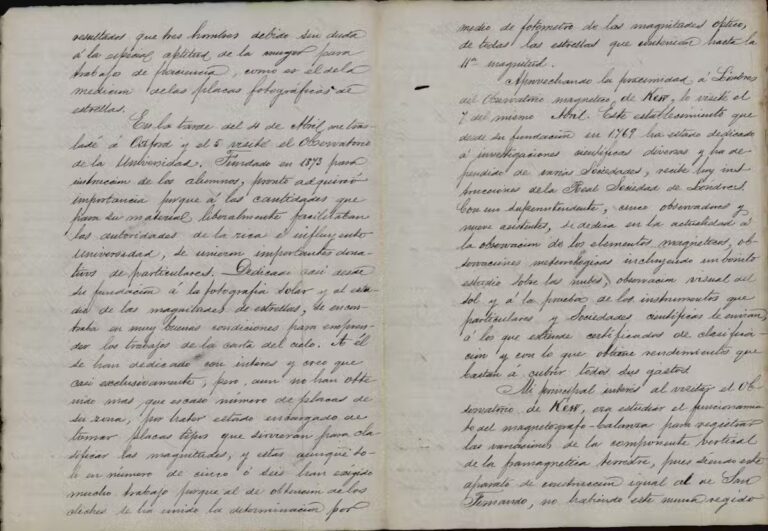 resultados que tres hombres debido sin duda
á la especial aptitud de la mujer para
trabajo de paciencia, como es el de la
medicion de las placas fotográficas de
estrellas.
En la tarde del 4 de Abril me tras
ladé á Oxford y el 5 visité el Observatorio
de la Universidad. Fundado en 1873 para
instruccion de los alumnos, pronto adquirió
importancia porque á las cantidades que
para su material liberalmente facilitaban
las autoridades de la rica é influyente
Universidad, se unieron importantes dona
tivos de particulares. Dedicado casi desde
su fundacion á la fotografia solar y al estu
dio de las magnitudes de estrellas, se encon
traba en muy buenas condiciones para empren
der los trabajos de la carta del cielo. A él
se han dedicado con interes y creo que
casi exclusivamente, pero aun no han obte
nido mas que escaso número de placas de
su zona, por haber estado embargado de
tomar placas tipos que sirvieran para cla
sificar las magnitudes, y estas aunque so
lo en número de cinco ó seis han exigido
mucho trabajo porque al de obtencion de los
clichés se ha unido la determinacion por
medio de fotómetro de las magnitudes opticas,
de todas las estrellas que contenian hasta la
11ª magnitud.
Aprovechando la proximidad á Lóndres
del Observatorio magnetico de Kew, lo visité el
7 del mismo Abril. Este establecimiento que
desde su fundacion en 1769 ha estado dedicado
á investigaciones cientificas diversas y ha de
pendido de varias Sociedades, recibe hoy ins
trucciones de la Real Sociedad de Londres.
Con un superintendente, cinco observadores y
nueve asistentes, se dedica en la actualidad á
la observacion de los elementos magnéticos, ob
servaciones meteorologicas incluyendo un bonito
estudio sobre las nubes, observacion visual del
sol y á la prueba de los instrumentos que
particulares y Sociedades cientificas le envian,
á los que extiende certificados de clasifica
cion y con lo que obtiene rendimientos que
bastan á cubrir todos sus gastos.
Mi principal interés al visitar el Ob
servatorio de Kew, era estudiar el funcionamien
to del magnetografo-balanza para registrar
las variaciones de la componente vertical
de la magnetica terrestre, pues siendo este
aparato de construccion igual al de San
Fernando, no habiendo este nunca regido